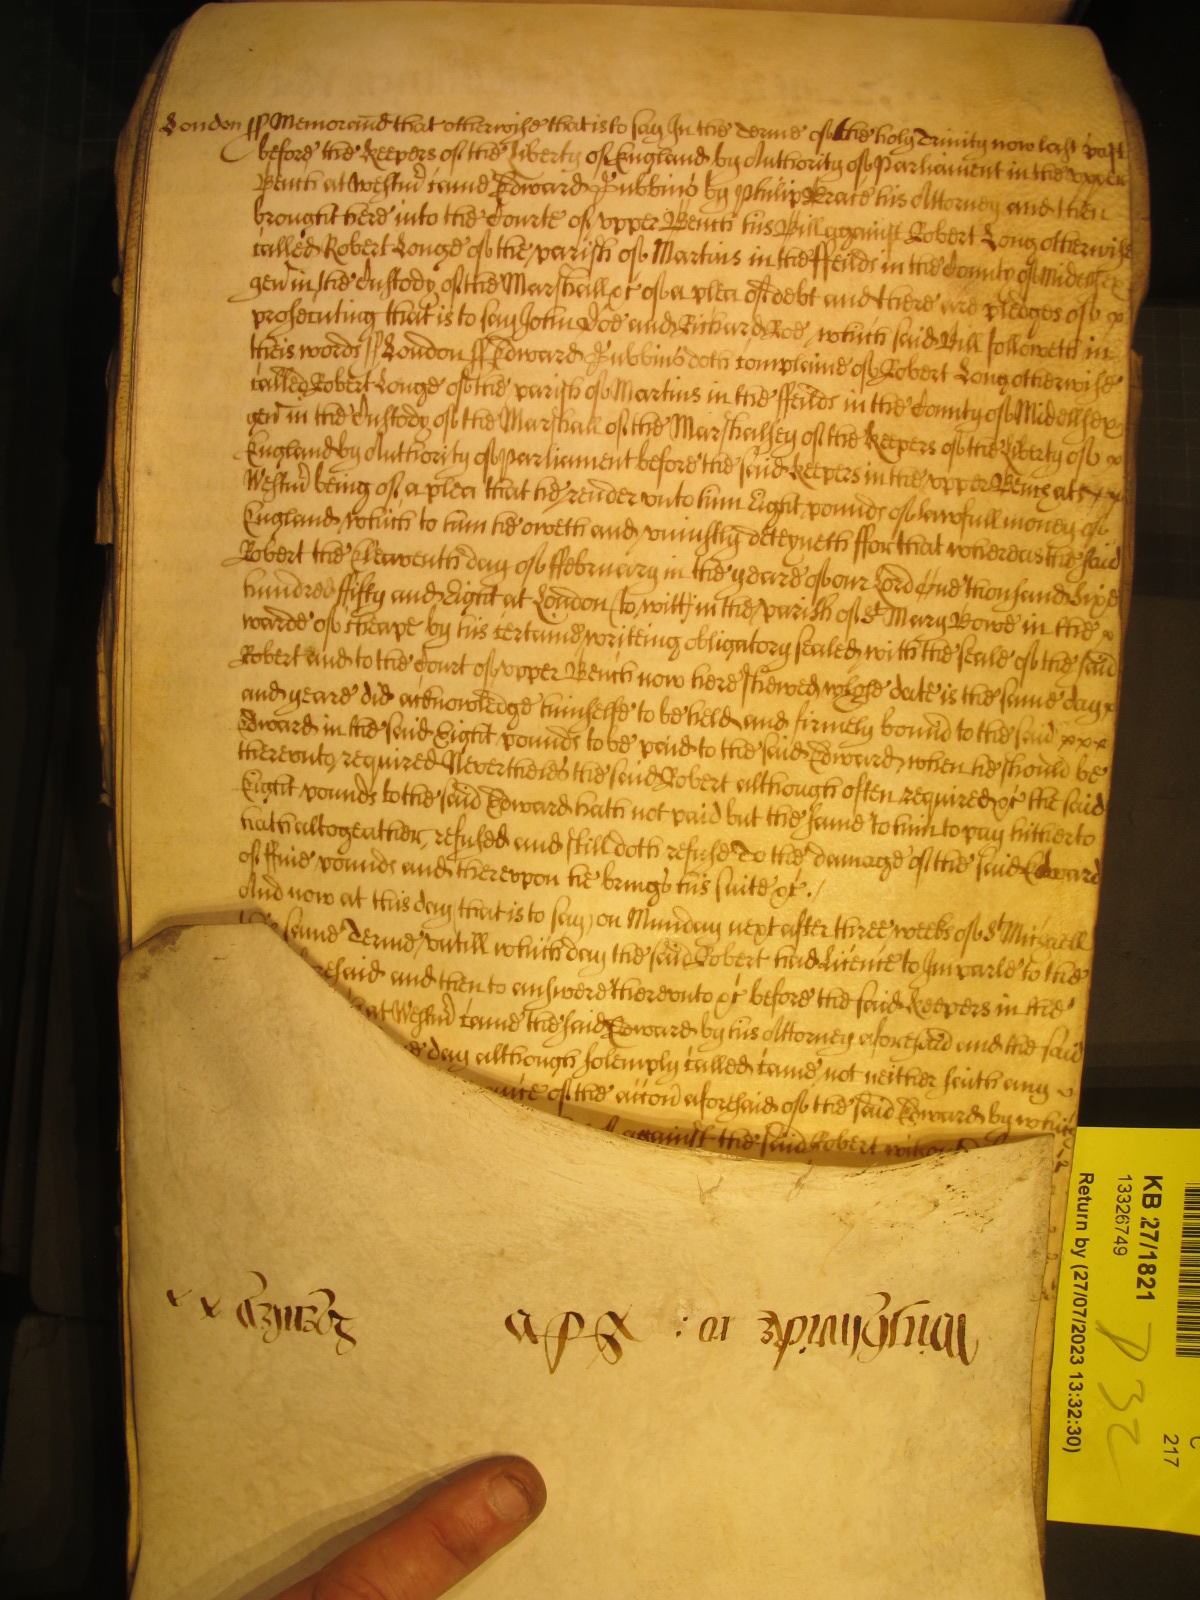 London ss Memorand that otherwise that is to say In the Terme of the holy Trinity now last past
before the Keepers of the Liberty of England by Authority of Parliament in the vpper
Bench at Westm came Edward Stubbins by Phillip his Attorney and then
brought here into the Courte of vpper Bench his Bill against Robert Long otherwise
called Robert Longe of the parish of Martins in the ffeilds in the County of Midellsex
gen in the Custody of the Marshall &c of a plea of debt and there are pledges of x
prosecuting that is to say John Doe and Richard Roe which said Bill followeth in
theis words ss London ss Edward Stubbins doth complaine of Robert Long otherwise
called Robert Longe of the parish of Martins in the ffeilds in the County of Midellsex
gen in the Custody of the Marshall of the Marshalsey of the Keepers of the Liberty of x
England by Authority of Parliament before the said Keepers in the vpper Bench at x x x
Westm being of a plea that he render vnto him Eight pounds of lawfull money of
England which to him he oweth and vniustly deteyneth ffor that whereas the said
Robert the Eleaventh day of ffebruary in the yeare of our Lord One thousand Sixe
hundred ffifty and Eight at London (to witt) in the parish of St Mary Bowe in the x
warde of Cheape by his certaine writeing obligatory sealed with the seale of the said
Robert and to the Court of vpper Bench now here shewed whose date is the same day x
and yeare did acknowledge himselfe to be held and firmely bound to the said x x x
Edward in the said Eight pounds to be paid to the said Edward when he should be
therevnto required Neverthelesse the said Robert although often required &c the said
Eight pounds to the said Edward hath not paid but the same to him to pay hitherto
hath altogeather refused and still doth refuse To the damage of the said Edward
of ffiue pounds and therevpon he brings his suite &c ./
And now at this day that is to say on Munday next after three weeks of St Michaell
same Terme vntill which day the said Robert had Licence to Imparle to the
and then to answere therevnto &c before the said Keepers in the
at Westm came the said Edward by his Attorney aforesaid and the said
day although solemply called came not neither saith any
of the accon aforesaid of the said Edward by which
against the said Robert
KB 27/1821
13326749
Return by (27/07/2023 13:32:30)
217